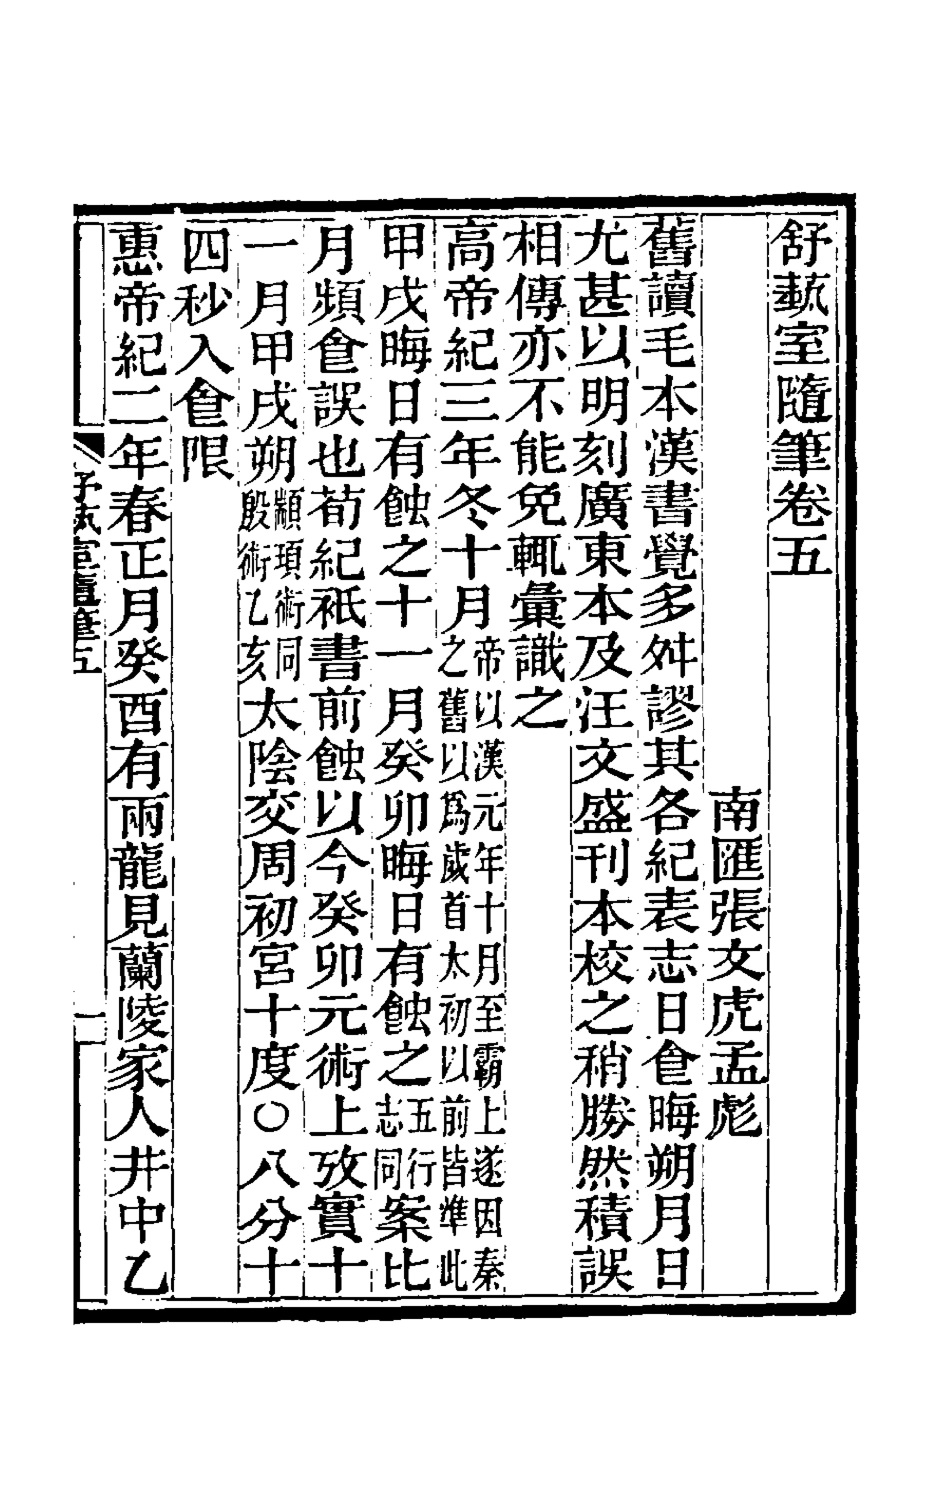 舒蓺室隨筆卷五
南匯張文虎孟彪
舊讀毛本漢書覺多舛謬其各紀表志日食晦朔月日
尤甚以明刻廣東本及汪文盛刊本校之稍勝然積誤
相傳亦不能免輒彙識之
高帝紀三年冬十月帝以漢元年十月至霸上遂因秦之舊以爲歲首太初以前皆準此
甲戌晦日有蝕之十一月癸卯晦日有蝕之五行志同案比
月頻食誤也荀紀祇書前蝕以今癸卯元術上攷實十
一月甲戌朔顓頊術同殷術乙亥太陰交周初宮十度〇八分十
四秒入食限
惠帝紀二年春正月癸酉有兩龍見蘭陵家人井中乙
舒蓺室隨筆五
一